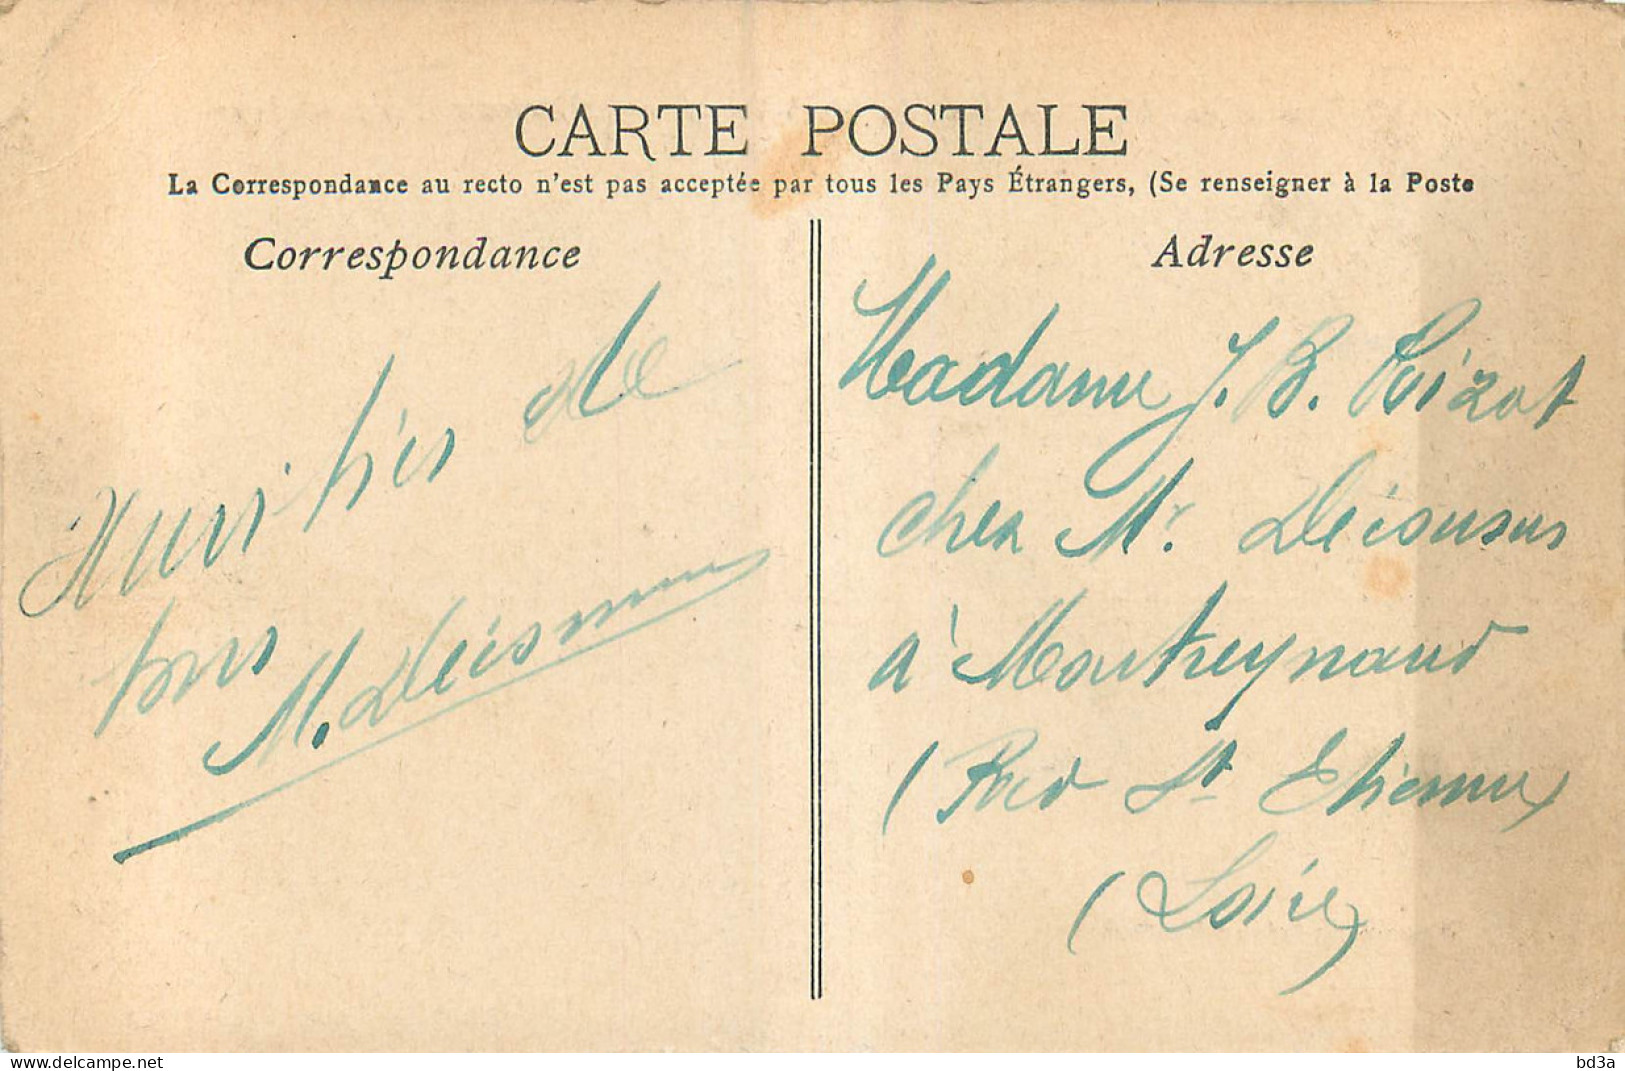 CARTE POSTALE
La Correspondance au recto n'est pas acceptée par tous les Pays Étrangers, (Se renseigner à la Poste
Correspondance
Amitiés de
tous
M. Décousus
Adresse
Madame J. B. Poizat
chez Mr Décousus
à Montreynaud
(Par St Etienne)
(Loire)
www.delcampe.net
bd3a